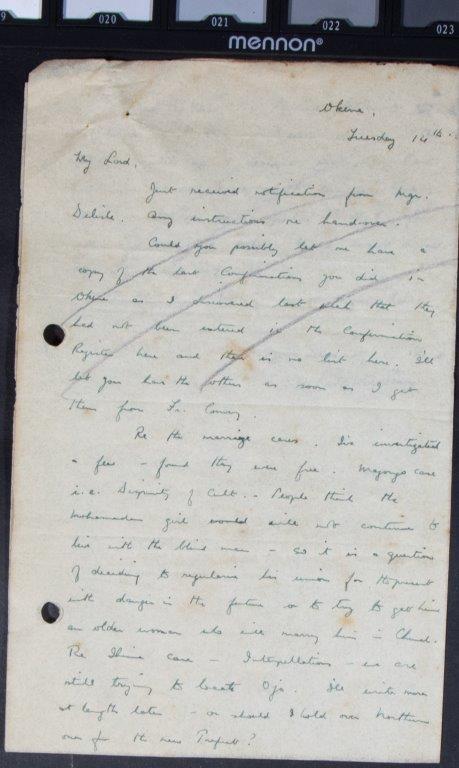 020 021 022 023
mennon®
Okene,
Tuesday 14th.
My Lord,
Just received notification from Mgr.
Delisle. Any instructions re handover.
Could you possibly let me have a
copy of the last Confirmations you did in
Okene as I discovered last week that they
had not been entered in the Confirmation
Register here and there is no list here. I'll
let you have the others as soon as I get
them from Fr. Conway.
Re the marriage cases. I've investigated
a few - found they were free. case
i.e. Disparity of Cult. - People think the
Mohamedan girl would not continue to
live with the blind man - so it is a question
of deciding to regularise his union for the present
with danger in the future or to try to get him
an older woman who will marry him in Church.
Re case - Interpellations - we are
still trying to locate Ojo. I'll write more
at length later - or should I hold over
over for the new Prefect?